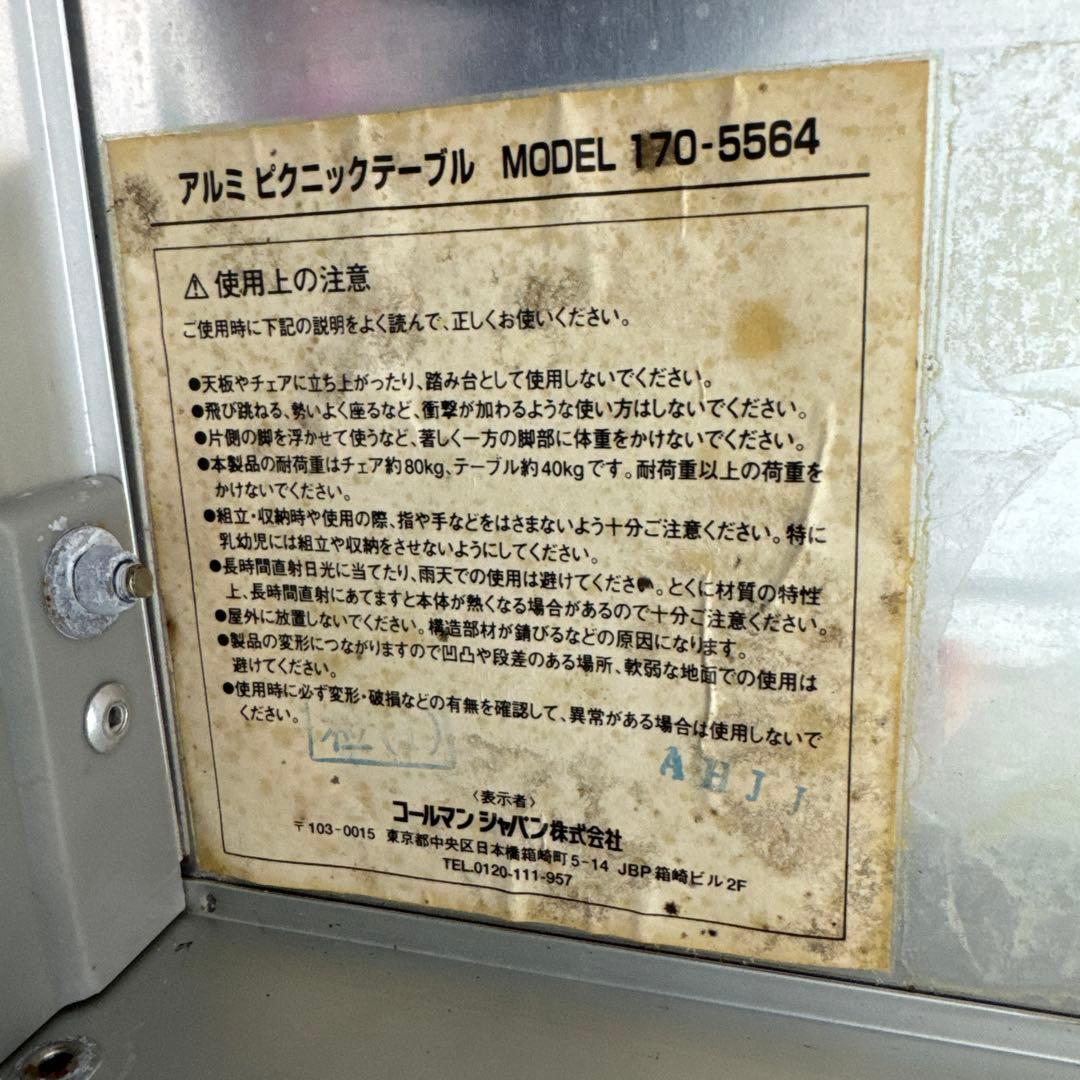 アルミ ピクニックテーブル MODEL 170-5564
⚠使用上の注意
ご使用時に下記の説明をよく読んで、正しくお使いください。
●天板やチェアに立ち上がったり、踏み台として使用しないでください。
●飛び跳ねる、勢いよく座るなど、衝撃が加わるような使い方はしないでください。
●片側の脚を浮かせて使うなど、著しく一方の脚部に体重をかけないでください。
●本製品の耐荷重はチェア約80kg、テーブル約40kgです。耐荷重以上の荷重を
かけないでください。
●組立・収納時や使用の際、指や手などをはさまないよう十分ご注意ください。特に
乳幼児には組立や収納をさせないようにしてください。
●長時間直射日光に当てたり、雨天での使用は避けてください。とくに材質の特性
上、長時間直射にあてますと本体が熱くなる場合があるので十分ご注意ください。
●屋外に放置しないでください。構造部材が錆びるなどの原因になります。
●製品の変形につながりますので凹凸や段差のある場所、軟弱な地面での使用は
避けてください。
●使用時に必ず変形・破損などの有無を確認して、異常がある場合は使用しないで
ください。
AHJJ
〈表示者〉
コールマン ジャパン株式会社
〒103-0015 東京都中央区日本橋箱崎町5-14 JBP箱崎ビル2F
TEL.0120-111-957